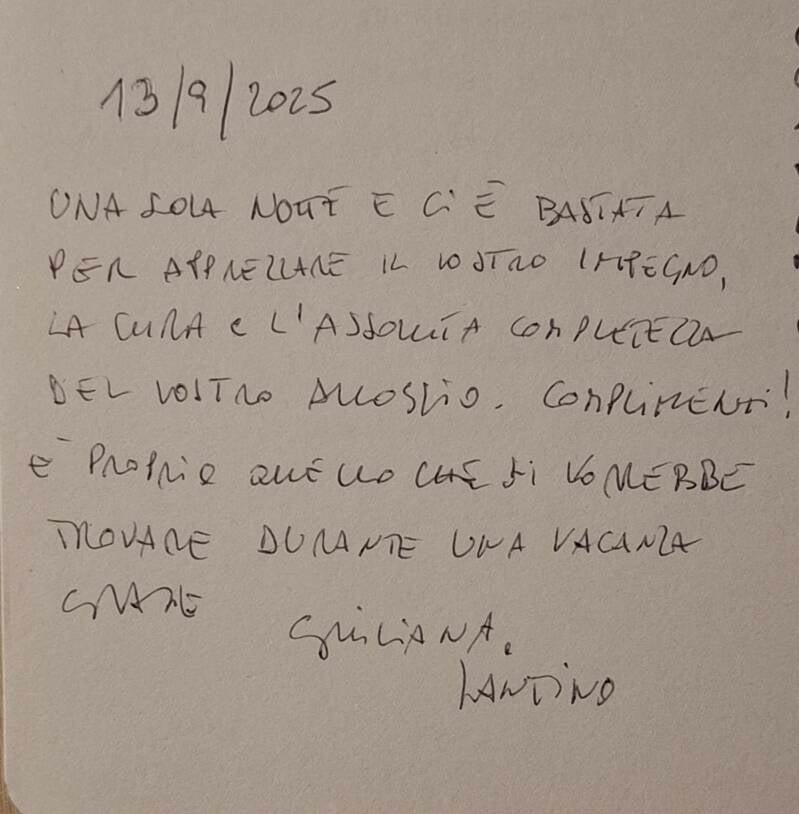 13/9/2025
UNA SOLA NOTTE E CI È BASTATA
PER APPREZZARE IL VOSTRO IMPEGNO,
LA CURA E L'ASSOLUTA COMPLETEZZA
DEL VOSTRO ALLOGGIO. COMPLIMENTI!
È PROPRIO QUELLO CHE SI VORREBBE
TROVARE DURANTE UNA VACANZA
GRAZIE
GIULIANA.